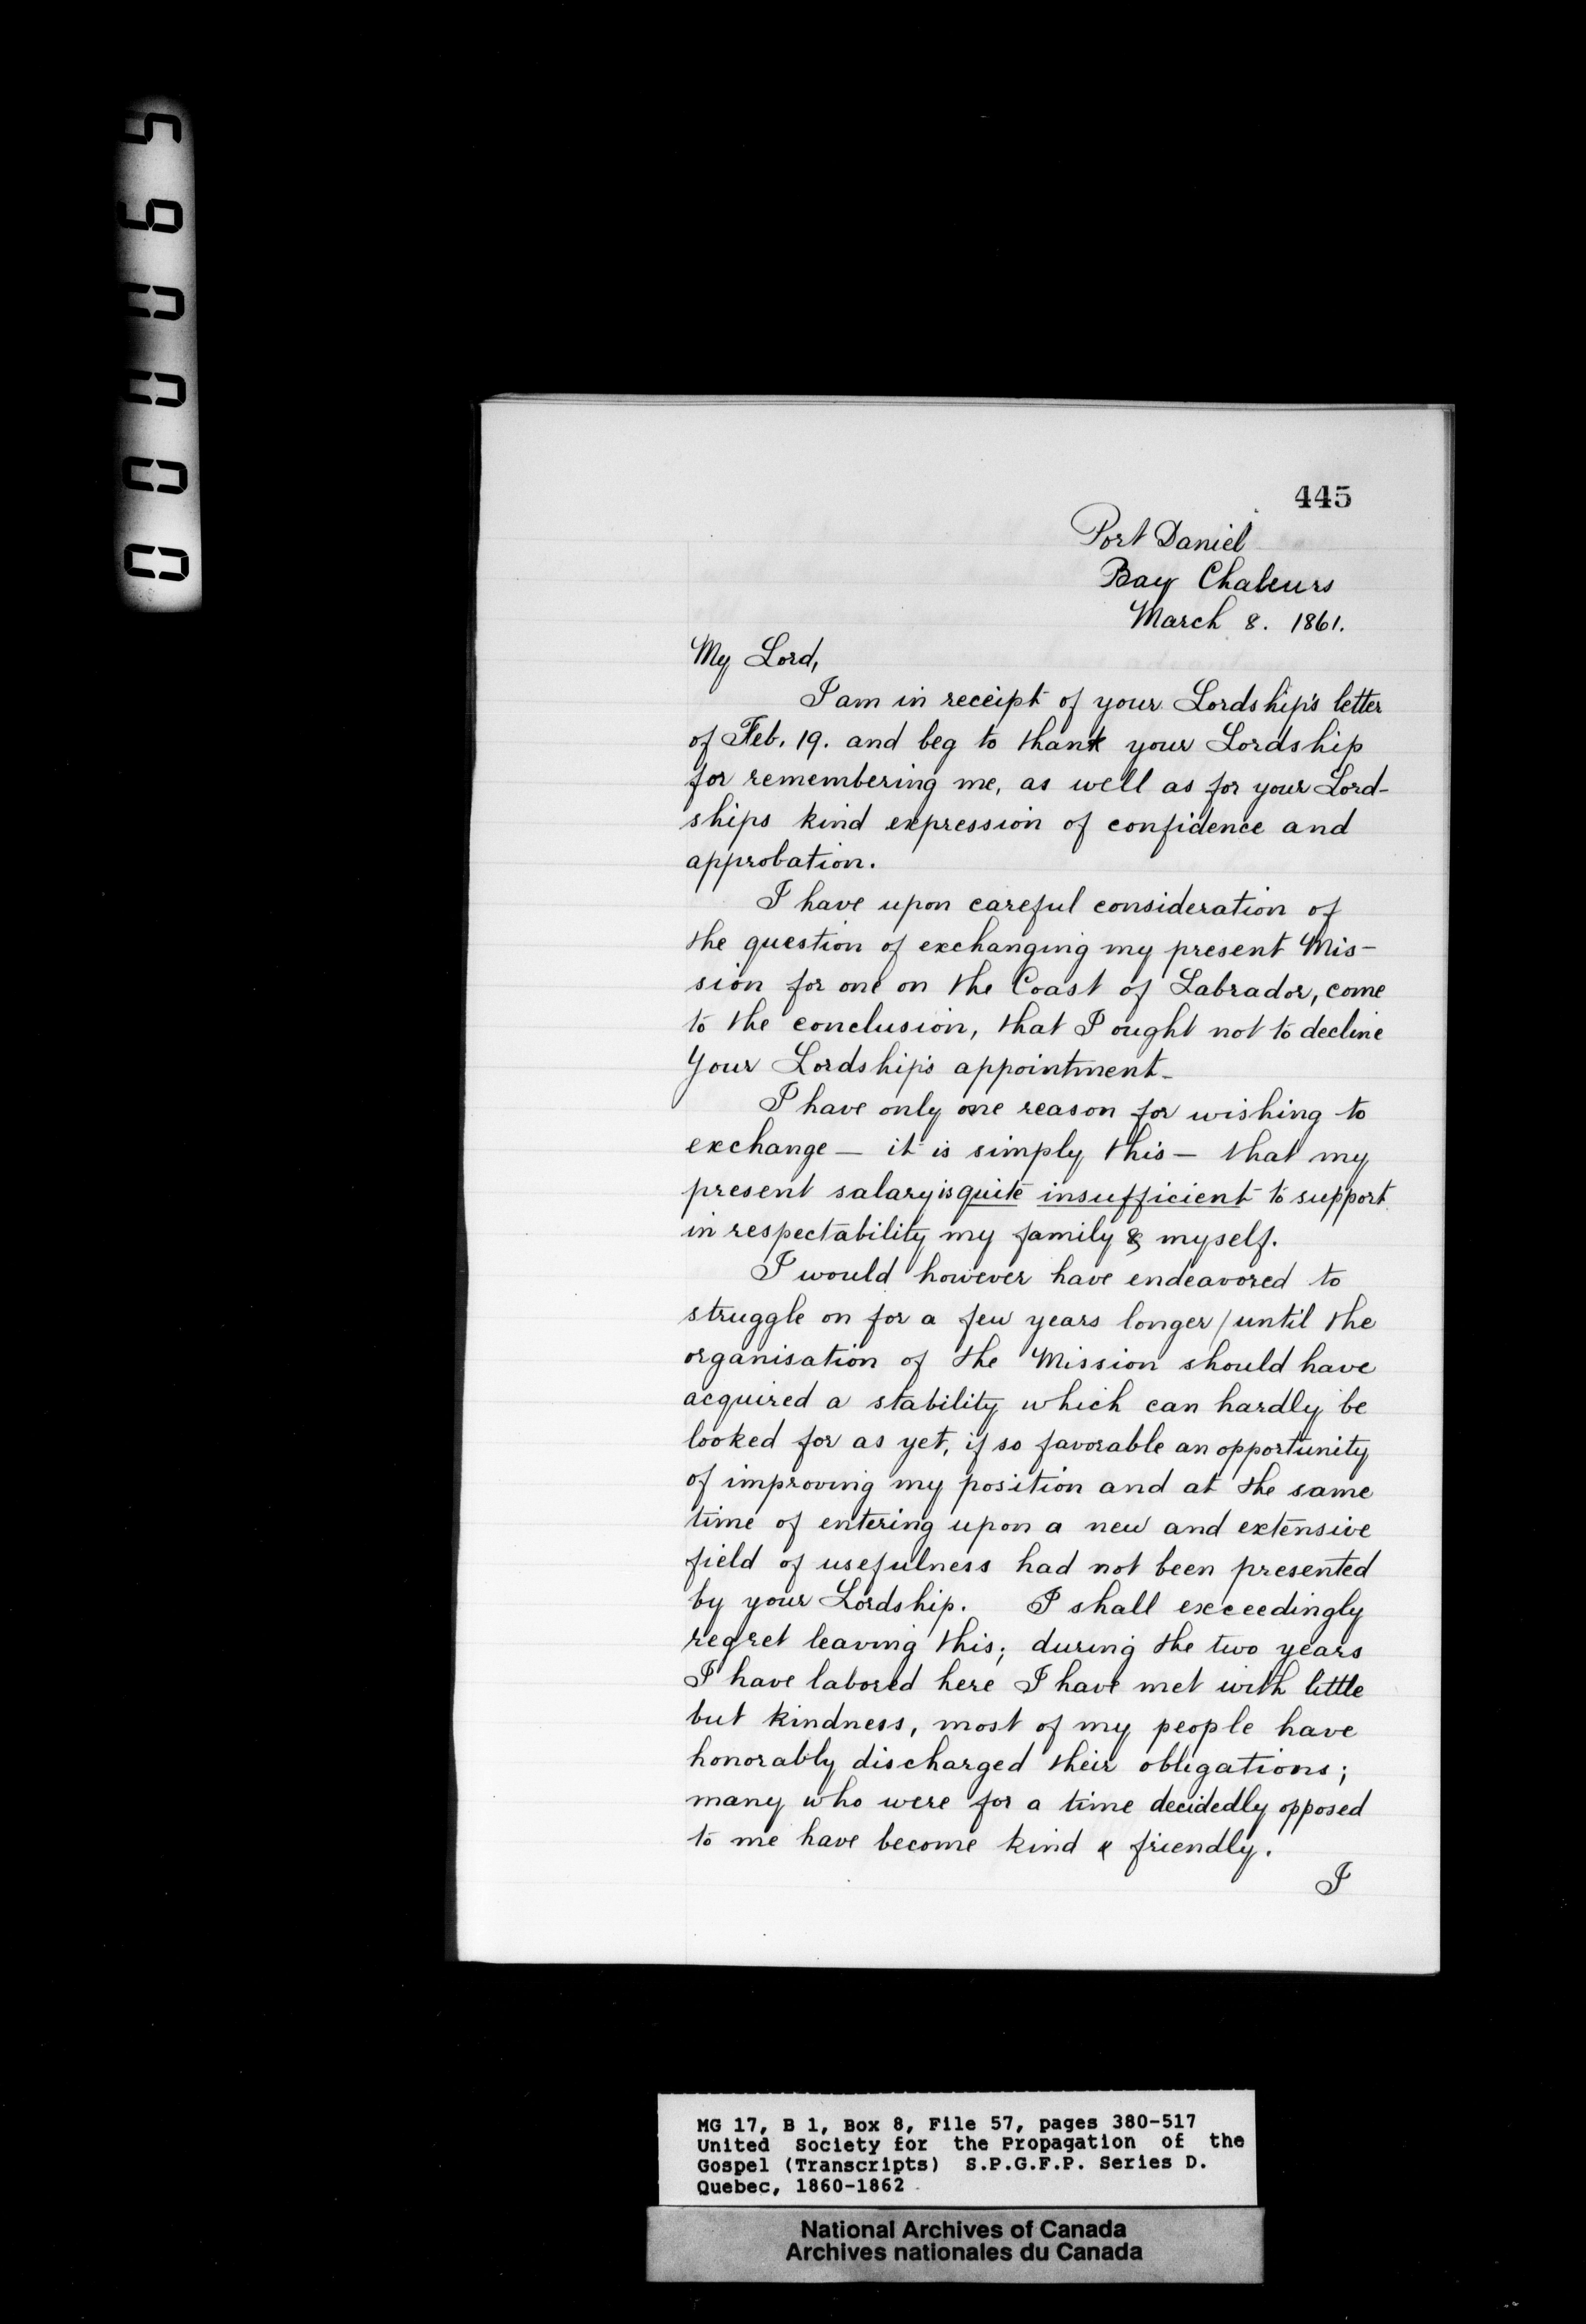 000065
445
Port Daniel
Bay Chaleurs
March 8. 1861.
My Lord,
I am in receipt of your Lordship's letter
of Feb. 19. and beg to thank your Lordship
for remembering me, as well as for your Lord-
ships kind expression of confidence and
approbation.
I have upon careful consideration of
the question of exchanging my present Mis-
sion for one on the Coast of Labrador, come
to the conclusion, that I ought not to decline
Your Lordship's appointment_
I have only one reason for wishing to
exchange — it is simply this — that my
present salary is quite insufficient to support
in respectability my family & myself.
I would however have endeavored to
struggle on for a few years longer / until the
organisation of the Mission should have
acquired a stability which can hardly be
looked for as yet, if so favorable an opportunity
of improving my position and at the same
time of entering upon a new and extensive
field of usefulness had not been presented
by your Lordship. I shall exceedingly
regret leaving this; during the two years
I have labored here I have met with little
but kindness, most of my people have
honorably discharged their obligations;
many who were for a time decidedly opposed
to me have become kind & friendly.
I
MG 17, B 1, Box 8, File 57, pages 380-517
United Society for the Propagation of the
Gospel (Transcripts) S.P.G.F.P. Series D.
Quebec, 1860-1862
National Archives of Canada
Archives nationales du Canada